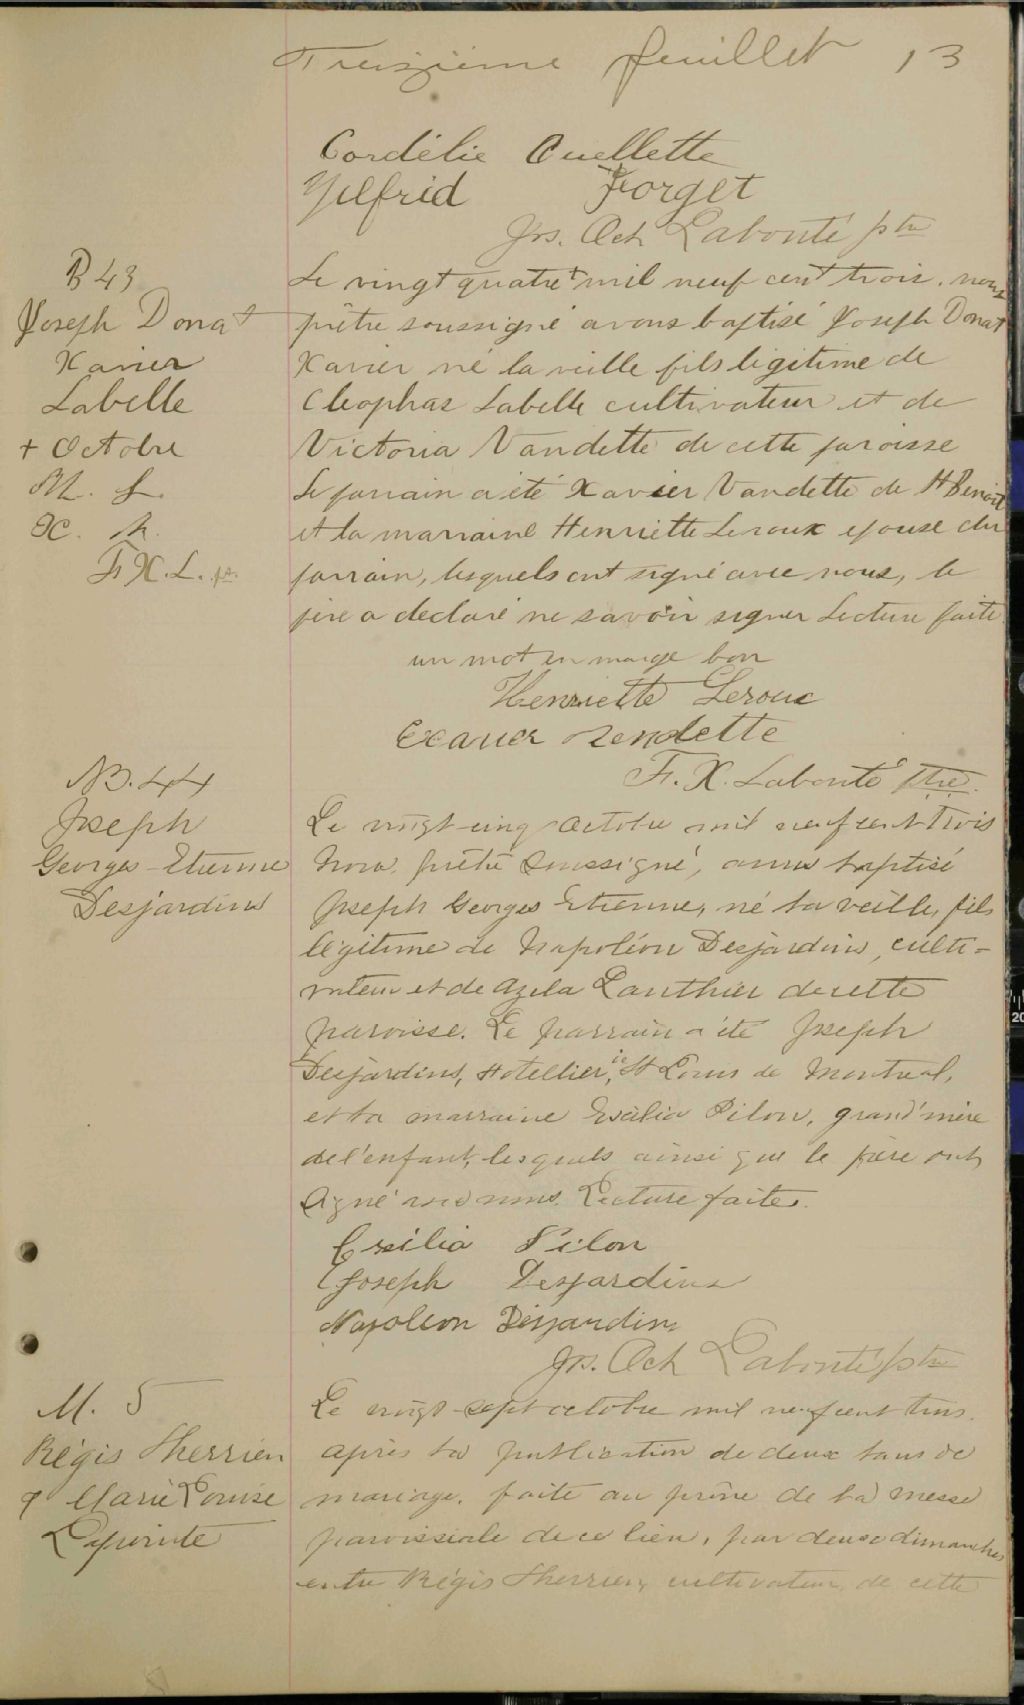 Treizième feuillet 13
Cordélie Ouellette
Wilfrid Forget
Jos. Oct Labonté ptre
B 43
Joseph Donat
Xavier
Labelle
+ Octobre
H. L.
X. V.
F. X. L. pt.
Le vingt quatre + mil neuf cent trois, nous
prêtre soussigné avons baptisé Joseph Donat
Xavier né la veille fils légitime de
Cleophas Labelle cultivateur et de
Victoria Vandette de cette paroisse
Le parrain a été Xavier Vandette de St Benoit
et la marraine Henriette Leroux epouse du
parrain, lesquels ont signé avec nous, le
père a declaré ne savoir signer Lecture faite
un mot en marge bon
Henriette Leroux
Exavier Vendette
F. X. Labonté ptre.
B. 44
Joseph
Georges-Etienne
Desjardins
Le vingt-cinq Octobre mil neuf cent trois
Nous, prêtre soussigné, avons baptisé
Joseph Georges Etienne, né la veille, fils
légitime de Napoléon Desjardins, culti-
vateur et de Azela Lanthier de cette
paroisse. Le parrain a été Joseph
Desjardins, Hotellier, St Louis de Montreal,
et la marraine Exilia Pilon, grand'mère
de l'enfant, lesquels ainsi que le père ont
signé avec nous. Lecture faite.
Exilia Pilon
Joseph Desjardins
Napoleon Desjardins
Jos. Oct Labonté ptre
M. 5
Régis Therrien
& Marie Louise
Lapointe
Le vingt-sept octobre mil neuf cent trois.
après la publication de deux bans de
mariage, faite au prône de la messe
paroissiale de ce lieu, par deux dimanches
entre Régis Therrien, cultivateur, de cette